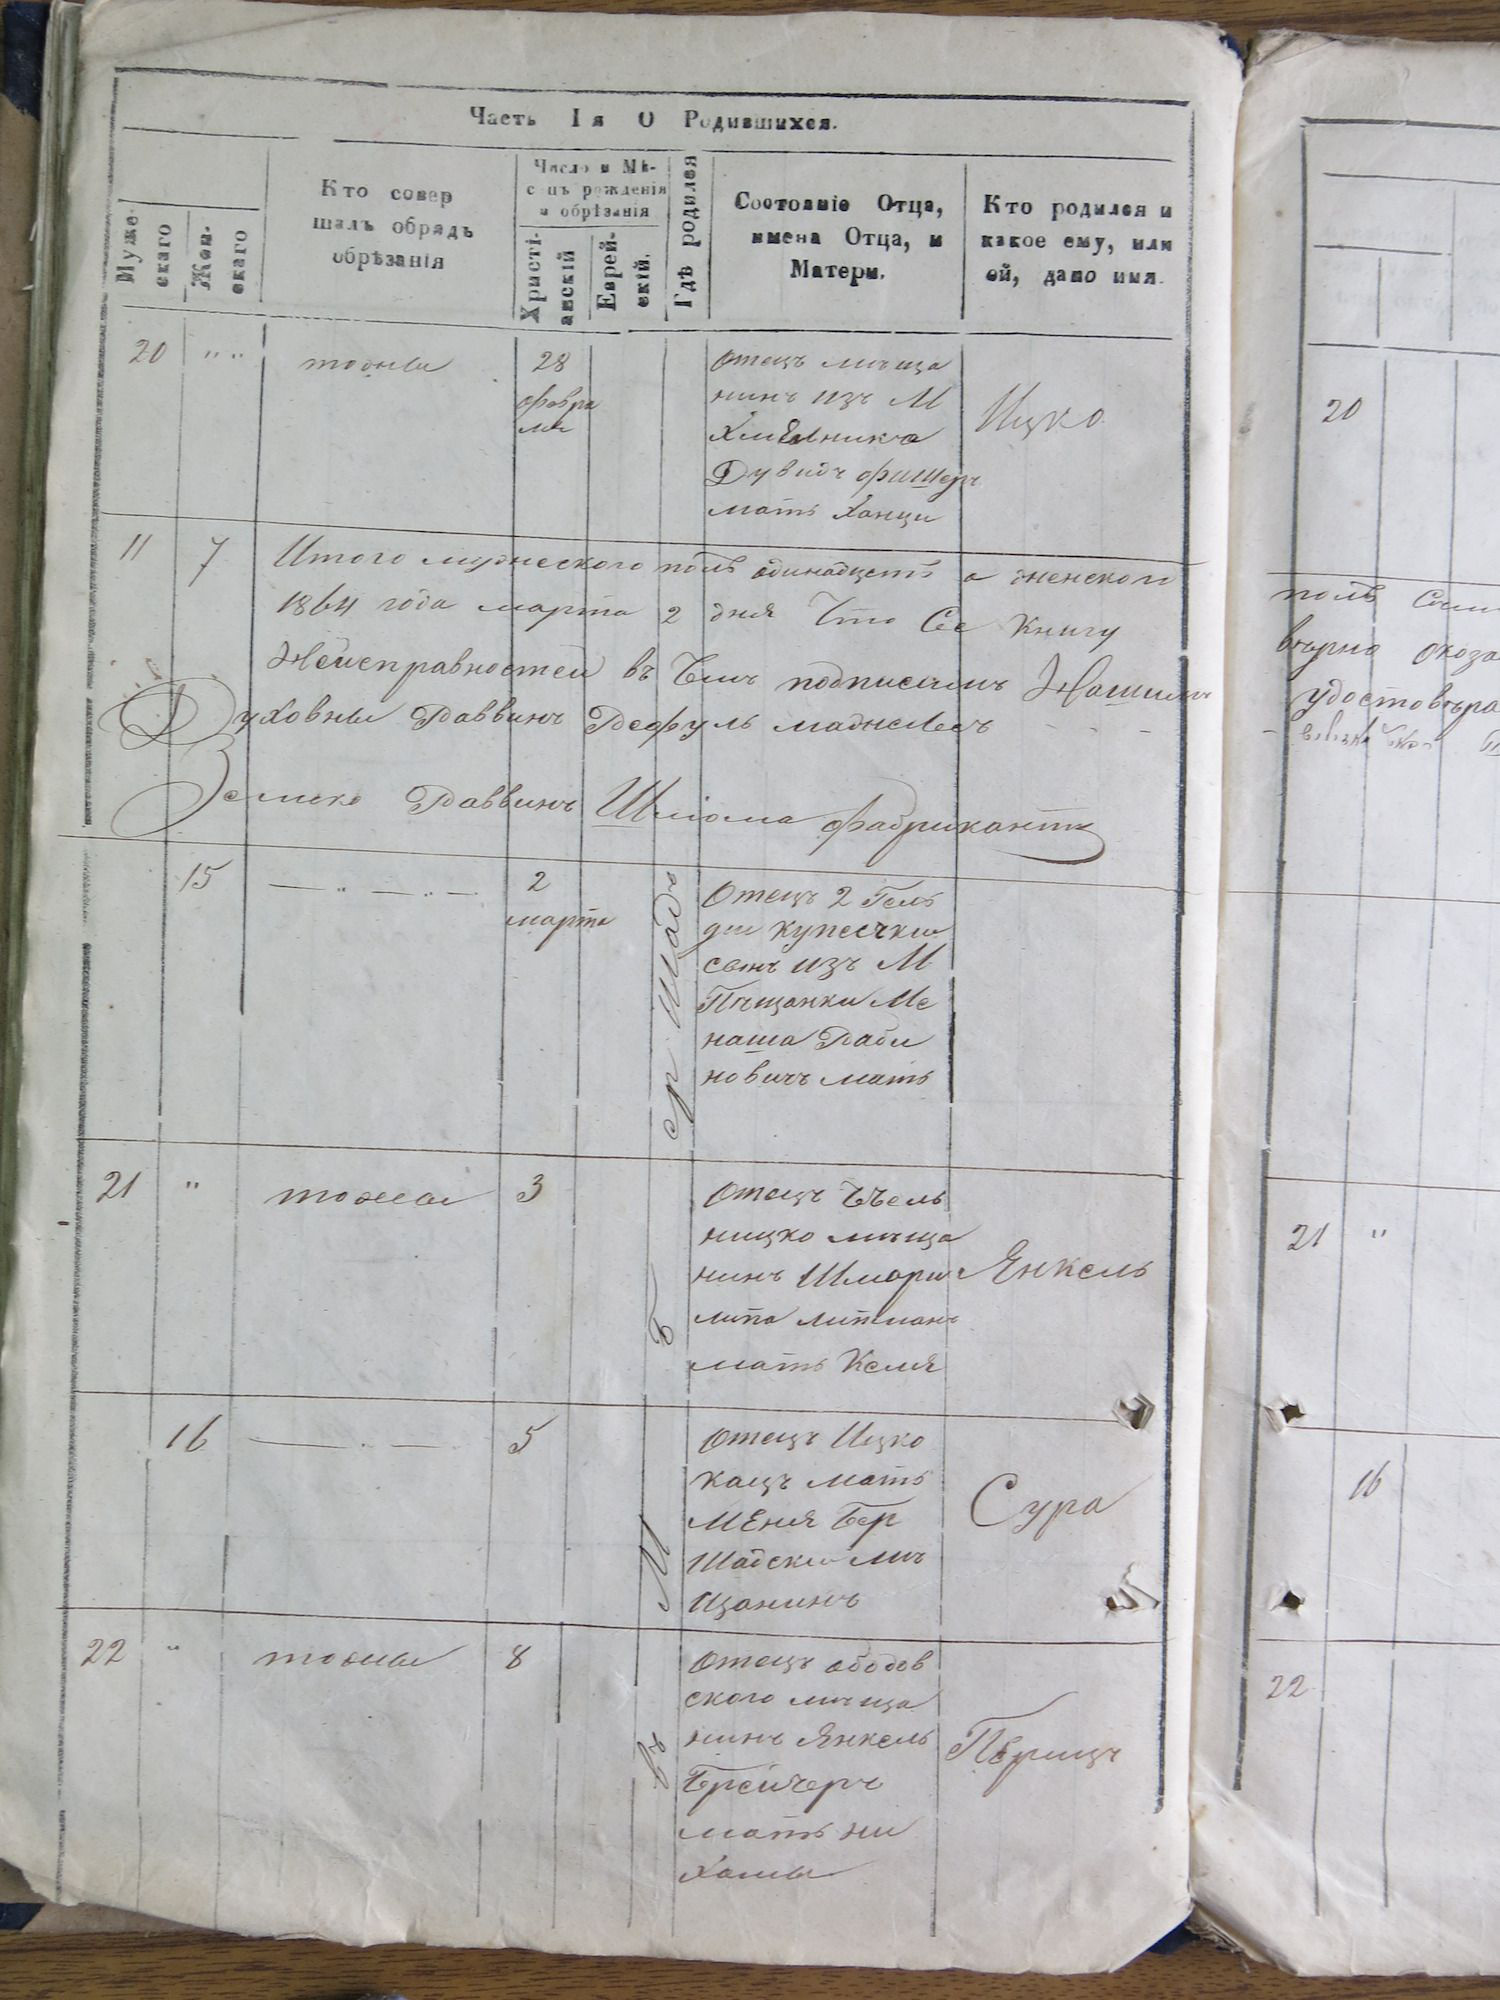 Часть Iя О Родившихся.
Мужескаго
Женскаго
Кто совер
шалъ обрядъ
обрѣзанія
Число и Мѣ-
сяцъ рожденія
и обрѣзанія
Христі-
анскій
Еврей-
скій.
Гдѣ родился
Состояніе Отца,
имена Отца, и
Матери.
Кто родился и
какое ему, или
ей, дано имя.
20 " " тотже 28
февра
ля
Отецъ мѣща
нинъ изъ М
Хмѣлника
Дувидъ Фишеръ
мать Ханци
Ицко
11 7 Итого мужеского полъ одинадцеть а женского
1864 года марта 2 дня Что Сее Книгу
Неисправностей въ Чемъ подписемъ Нашимъ
Духовны Раввинъ Рефуль
Раввинъ Шліома Фабрикантъ
15 — " — " — 2
марта
Отецъ 2 Гель
ди купечки
сынъ изъ М
Пѣщанки Ме
наша Раби
новичъ мать
21 " тоже 3
Отецъ
ницко мѣща
нинъ Шмари
липа Литманъ
мать Келя
Янкель
16 — " — 5
Отецъ Ицко
Кацъ мать
Меня Бер
Шадски мѣ
щанинъ
Сура
22 " тоже 8
Отецъ ободов
ского мѣща
нинъ Янкель
Брейчеръ
мать ни
Хамы
Перицъ
въ М Б р Шадъ
20
полъ
вѣрно оказа
удостовѣра
21 "
16
22